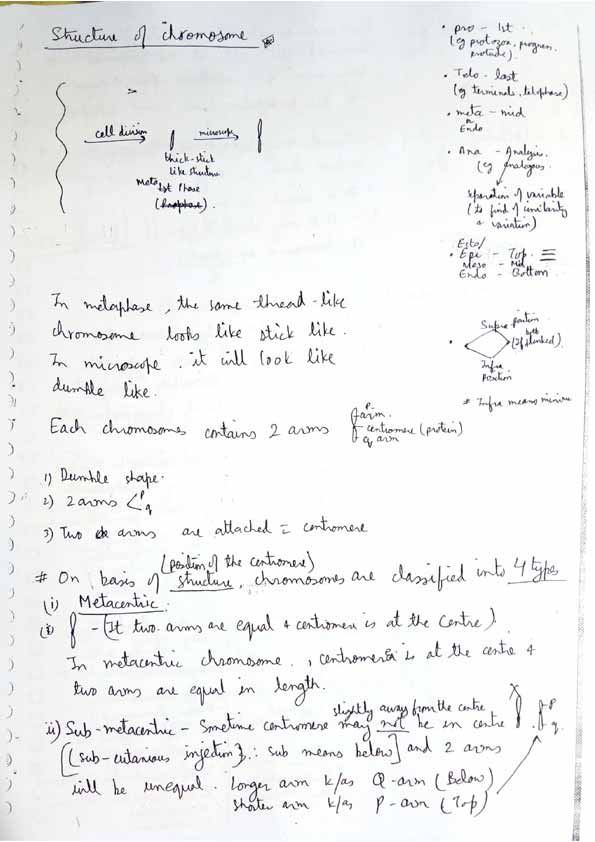 Structure of chromosome
cell division
microscope
thick-stick
like structure
Meta
1st Phase
(Prophase).
• pro - 1st
(eg protozoa, progeny,
• Telo - last
(eg terminals, telophase)
• meta - mid
Endo
• Ana - Analysis.
(eg analogous
separation of variable
(to find of similarity
& variation)
Ecto/
• Epi - Top.
Meso - Mid
Endo - Bottom
Supra position
both
(If stacked)
Infra
position
# Infra means minium
In metaphase, the same thread-like
chromosome looks like stick like.
In microscope, it will look like
dumble like.
Each chromosomes contains 2 arms
P
arm.
centromere (protein)
q arm
1) Dumble shape.
2) 2 arms < P
q
3) Two arms are attached = centromere
(position of the centromere)
# On basis of structure, chromosomes are classified into 4 types
(i) Metacentric:
- (It two arms are equal + centromere is at the centre).
In metacentric chromosome, centromere is at the centre +
two arms are equal in length.
slightly away from the centre
ii) Sub-metacentric - Sometime centromere may not be in centre
P
q.
[(sub-cutanious injection) ∴ sub means below] and 2 arms
will be unequal. Longer arm k/as Q-arm (Below)
shorter arm k/as P-arm (Top)